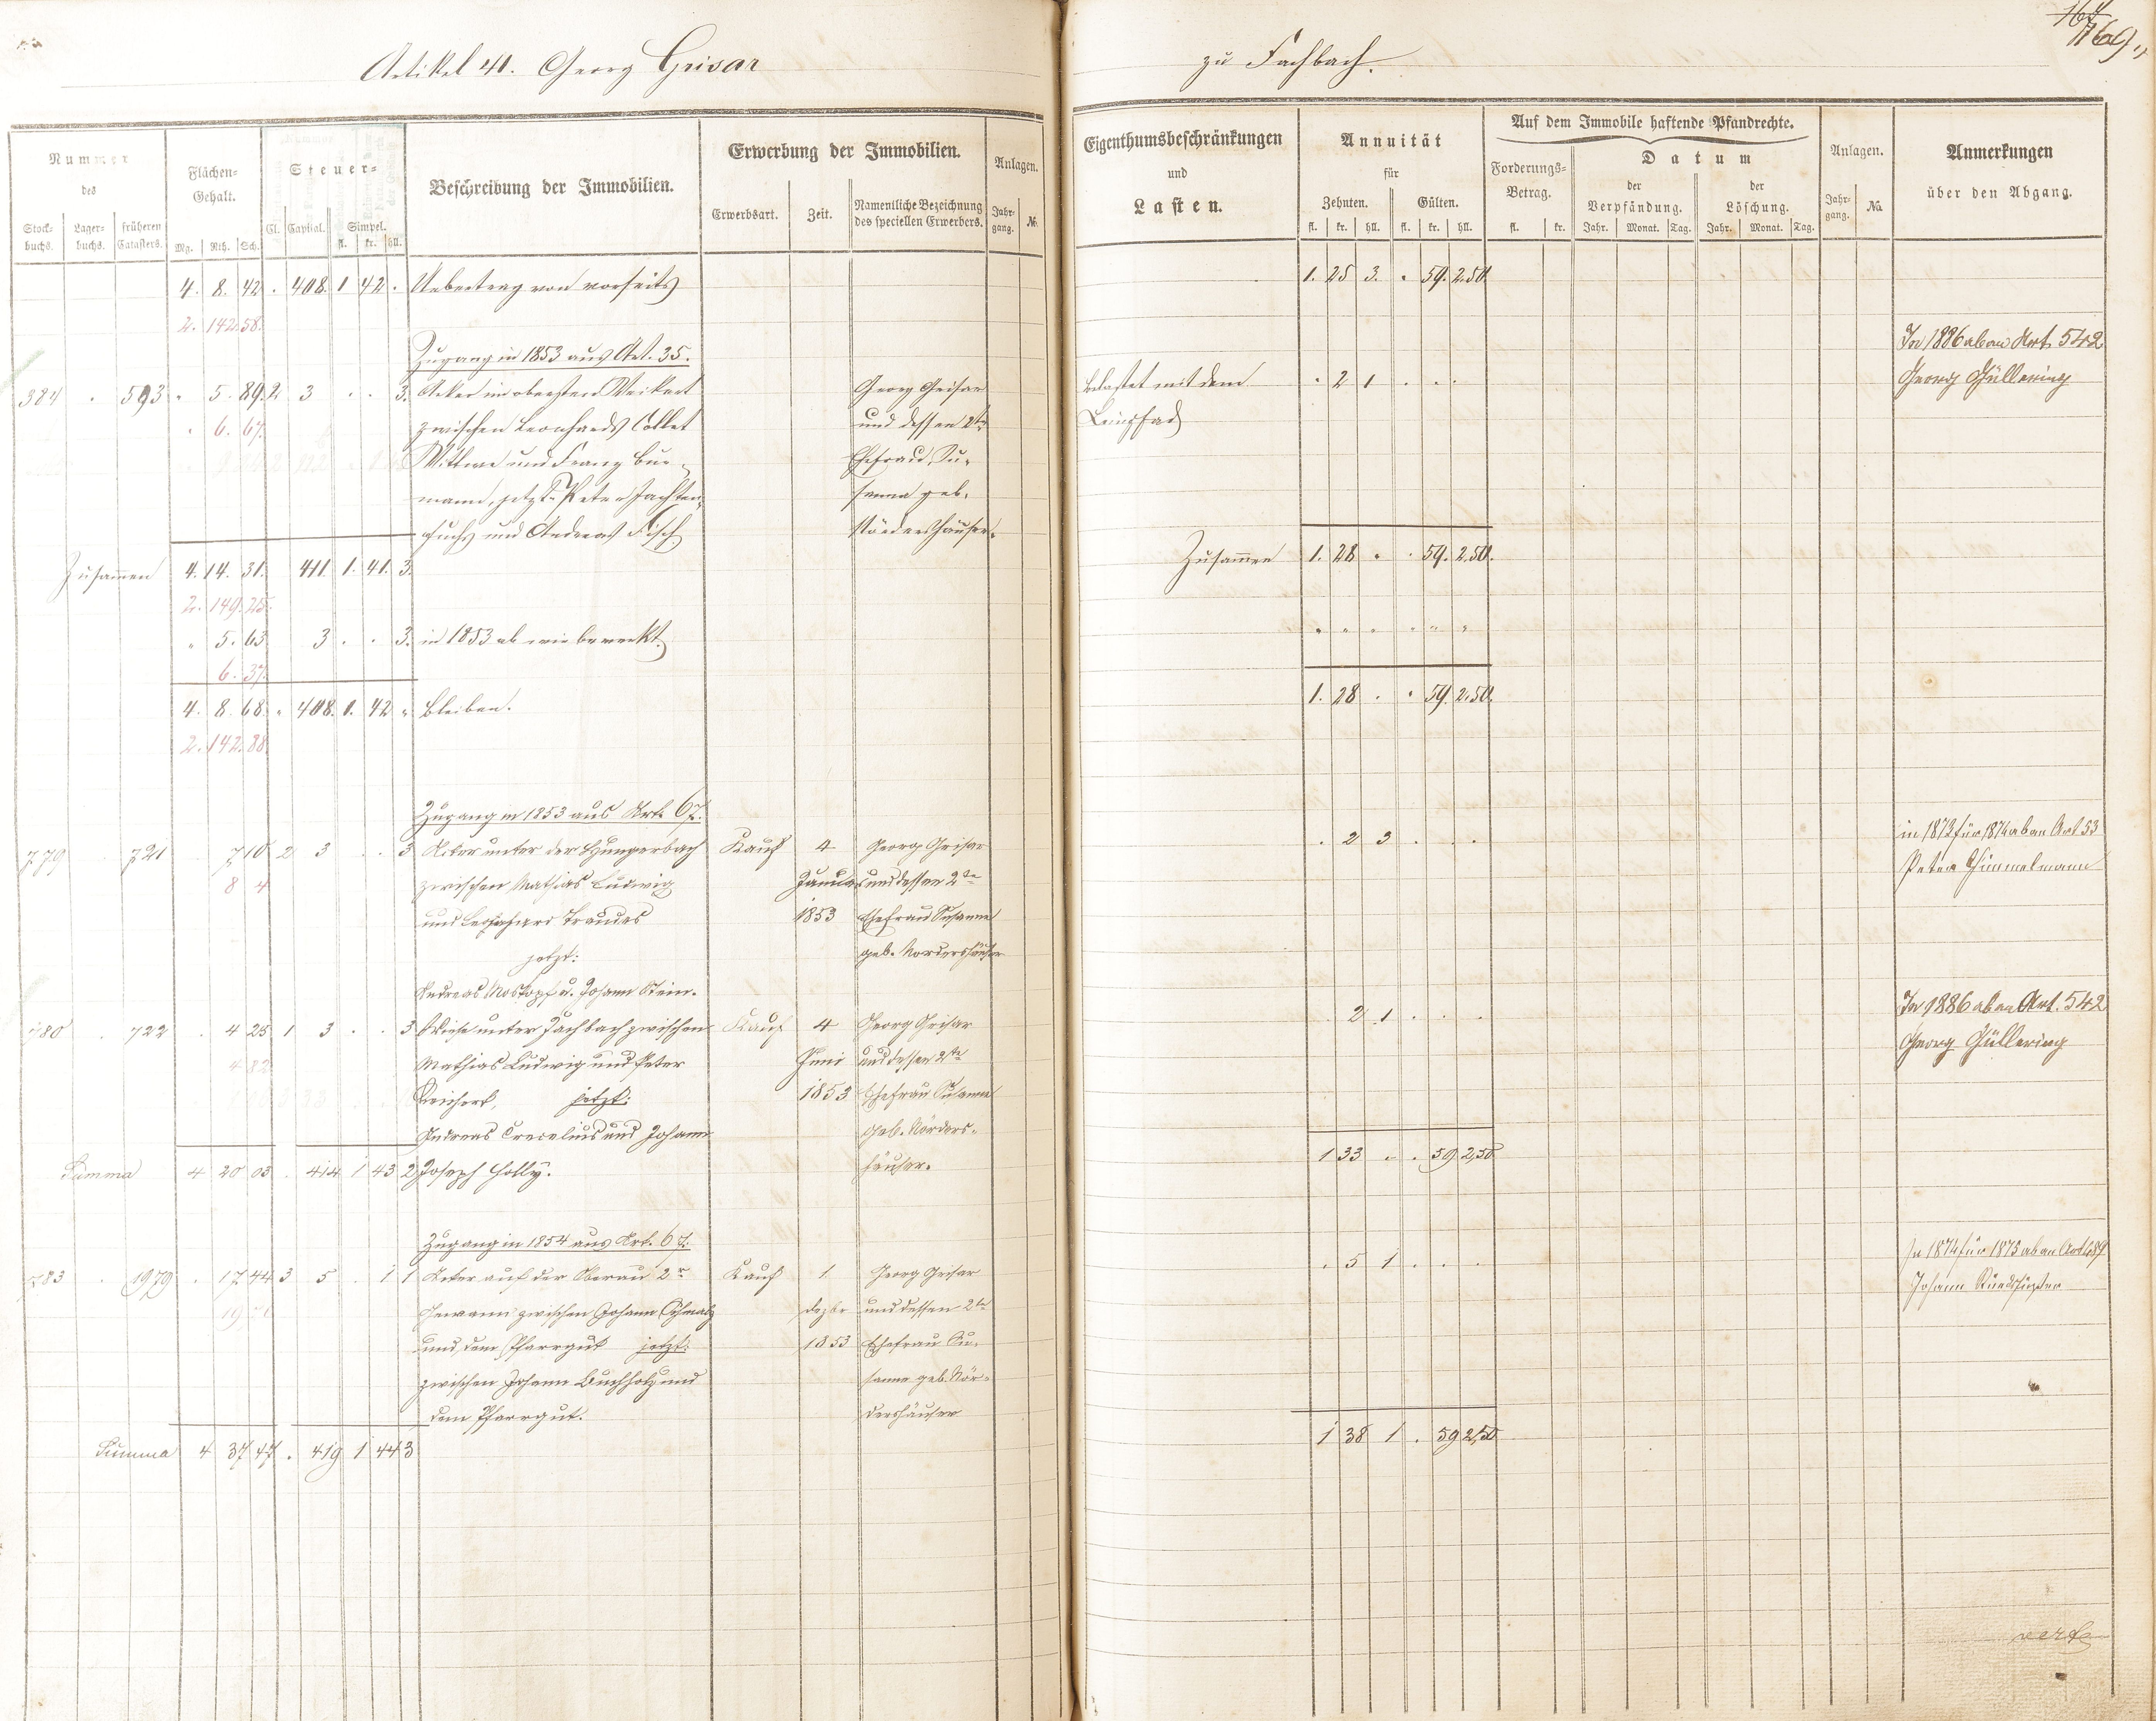 Artikel 41. Georg Grisar
zu Fachbach.
164
169
Nummer des
Stock-buchs. Lager-buchs. früheren Catasters.
Flächen-Gehalt.
Mg. Rth. Sch.
Steuer-
Cl. Captial. Simpel.
fl. kr. hll.
Beschreibung der Immobilien.
Erwerbung der Immobilien.
Erwerbsart. Zeit. Namentliche Bezeichnung des speciellen Erwerbers.
Anlagen.
Jahr-gang. №.
Eigenthumsbeschränkungen und Lasten.
Annuität für
Zehnten. Gülten.
fl. kr. hll. fl. kr. hll.
Auf dem Immobile haftende Pfandrechte.
Forderungs-Betrag.
fl. kr.
Datum
der Verpfändung. der Löschung.
Jahr. Monat. Tag. Jahr. Monat. Tag.
Anlagen.
Jahr-gang. No.
Anmerkungen über den Abgang.
4. 8. 42. . 408. 1 42 . Uebertrag von vorseits 1. 25 3. . 59. 2.50.
2. 142. 58.
Zugang in 1853 aus Art. 35. In 1886 ab an Art. 542
384 . 593 . 5. 89. 2 3 . . 3. Acker im obersten Georg Grisar belastet mit dem . 2 1 . . . Georg Güllering
. 6. 67. zwischen Leonhards Collet und dessen 2te Leinpfad
Wittwe und Franz Bur- Ehefrau Su-
mann, jetzt Peter Jachten- sanna geb.
fuchs und Andreas Fisch Nördershäuser.
Zusamen 4. 14. 31. 411. 1. 41. 3. Zusamen 1. 28 . . 59. 2.50.
2. 149. 25.
" 5. 63 3 . . 3. in 1853 ab wie bemerkt. " " " " " "
6. 37.
4. 8. 68. " 408. 1. 42 " bleiben. 1. 28 . . 59. 2.50.
2. 142. 88
Zugang in 1853 aus Art. 67.
779 . 721 . 7 10 2 3 . . 3 Acker unter der Hungerbach Kauf 4 Georg Grisar . 2 3 . . . in 1873 für 1874 ab an Art 53
8 4 zwischen Mathias Ludwig Januar und dessen 2te Peter Himmelmann
und Leonhard Traudes 1853 Ehefrau Susanna
jetzt: geb. Nördershäuser
Andreas Moskopf u. Johann Stein.
780 . 722 . 4 25 1 3 . . 3 Wiese unter Fachbach zwischen Kauf 4 Georg Grisar . 2 1 . . . In 1886 ab an Art. 542
4 82 Mathias Ludwig und Peter Juni und dessen 2te Georg Güllering
Reichert, jetzt: 1853 Ehefrau Susanna
Andreas Crecelius und Johann geb. Nörders-
Summa 4 20 03 . 414 1 43 2 Joseph Holly. häuser. 1 33 . . 59 2,50
Zugang in 1854 aus Art. 67.
783 . 1979 . 17 44 3 5 . 1 1 Acker auf der Oberau 2r Kauf 1. Georg Grisar . 5 1 . . . In 1874 für 1875 ab an Art 489
Gewann zwischen Johann Schmalz Dezbr und dessen 2te Johann
und dem Pfarrgut jetzt: 1853 Ehefrau Su-
zwischen Johann Buchholz und sanna geb. Nör-
dem Pfarrgut. dershäuser
Summa 4 37 47 . 419 1 44 3 1 38 1 . 59 2,50
verte